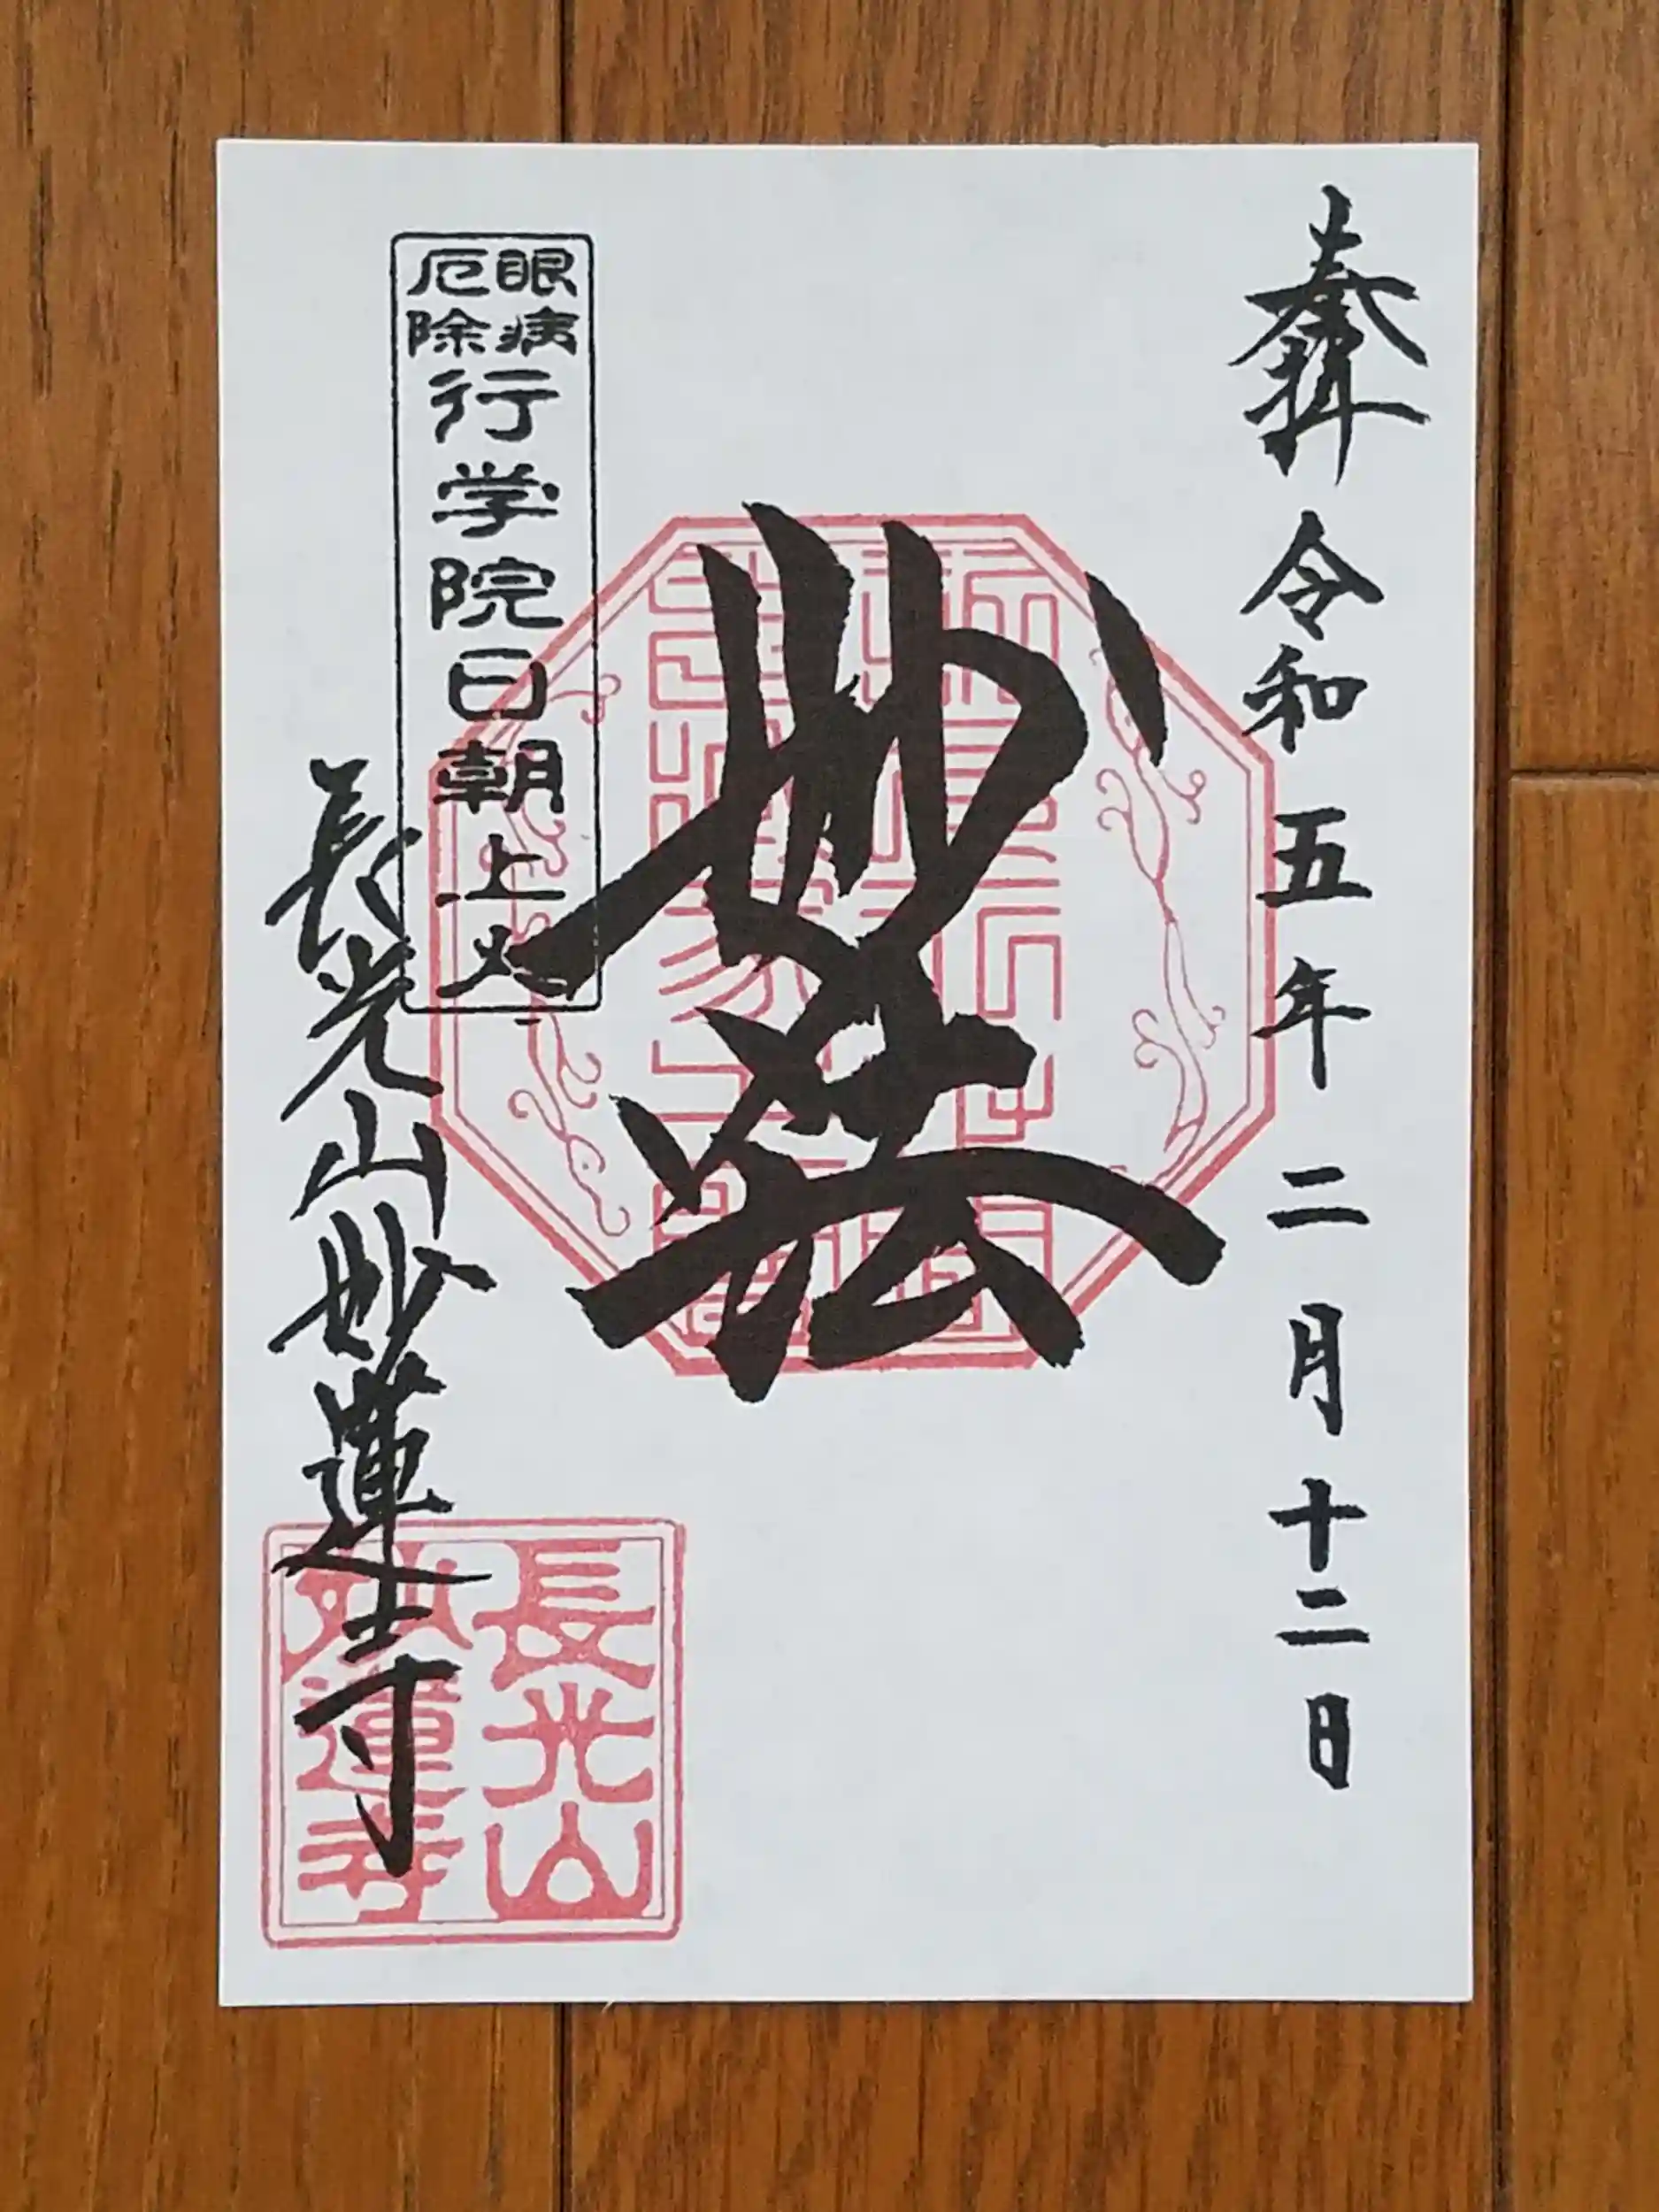 奉拝
令和五年二月十二日
妙法
眼病
厄除
行学院日朝上人
長光山妙蓮寺
長光山
妙蓮寺